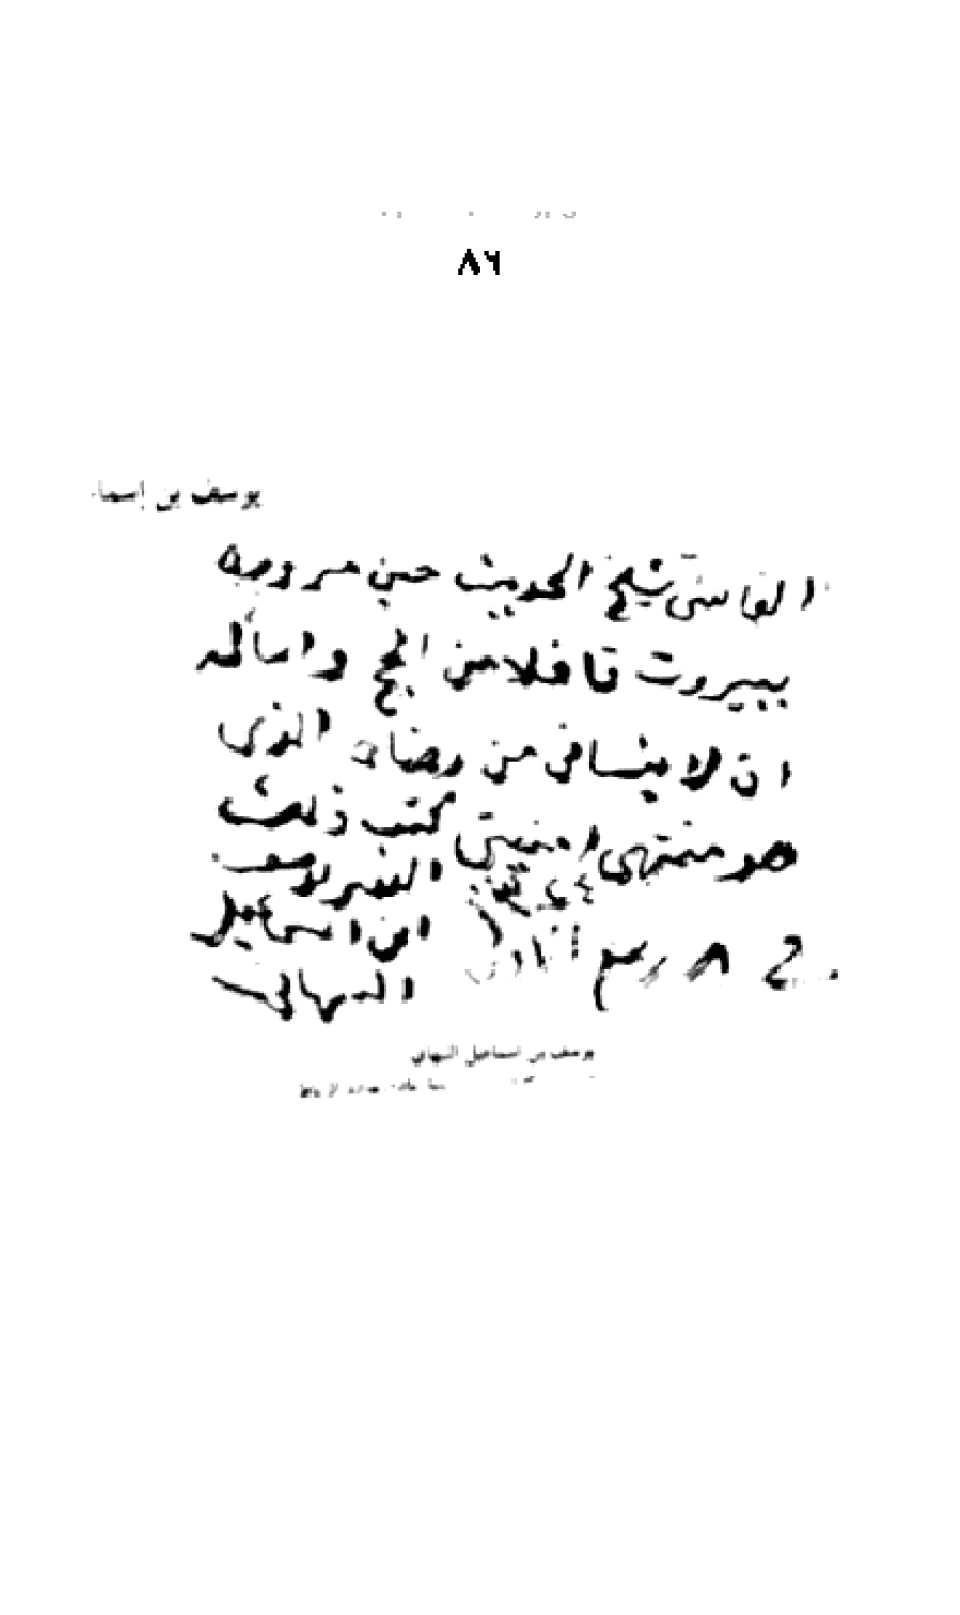 ٨٦
يوسف بن إسما
الفاسي شيخ الحديث حين مروره
ببيروت قافلا من الحج واسأله
ان لا ينساني من رضاه الذي
هو منتهى امنيتي كتب ذلك
الفقير يوسف
في ٨ ربيع
ابن اسماعيل
النبهاني
يوسف بن اسماعيل النبهاني